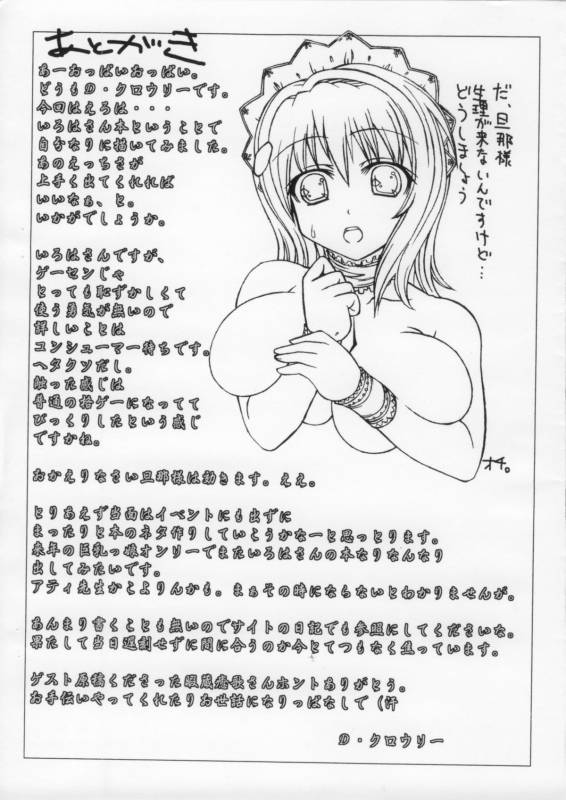 あとがき
あーおっぱいおっぱい。
どうもD・クロウリーです。
今回はえろは・・・
いろはさん本ということで
自分なりに描いてみました。
あのえっちさが
上手く出てくれれば
いいなぁ、と。
いかがでしょうか。
いろはさんですが、
ゲーセンじゃ
とっても恥ずかしくて
使う勇気が無いので
詳しいことは
コンシューマー待ちです。
ヘタクソだし。
触った感じは
普通の格ゲーになってて
びっくりしたという感じ
ですかね。
おかえりなさい旦那様は動きます。ええ。
とりあえず当面はイベントにも出ずに
まったりと本のネタ作りしていこうかなーと思っとります。
来年の巨乳っ娘オンリーでまたいろはさんの本なりなんなり
出してみたいです。
アティ先生かこよりんかも。まぁその時にならないとわかりませんが。
あんまり書くことも無いのでサイトの日記でも参照にしてくださいな。
果たして当日遅刻せずに間に合うのか今とてつもなく焦っています。
ゲスト原稿くださった さんホントありがとう。
お手伝いやってくれたりお世話になりっぱなしで（汗
D・クロウリー
だ、旦那様
生理が来ないんですけど…
どうしましょう
オチ。